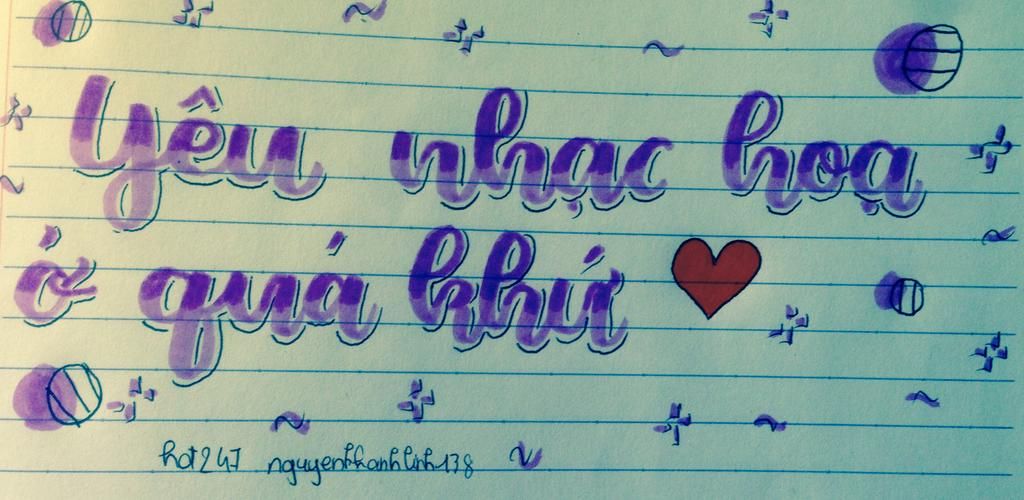 Yêu nhạc hoạ
ở quá khứ
hot247 nguyenkhanhlinh138